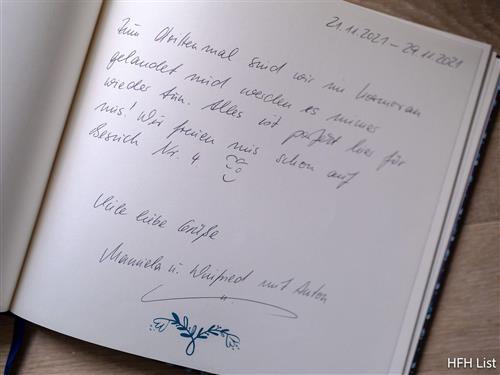 21.11.2021 – 29.11.2021
Zum dritten mal sind wir im
gelandet und werden es immer
wieder tun. Alles ist perfekt hier für
uns! Wir freuen uns schon auf
Besuch Nr. 4
Viele liebe Grüße
Manuela u. Winfried mit Anton
HFH List